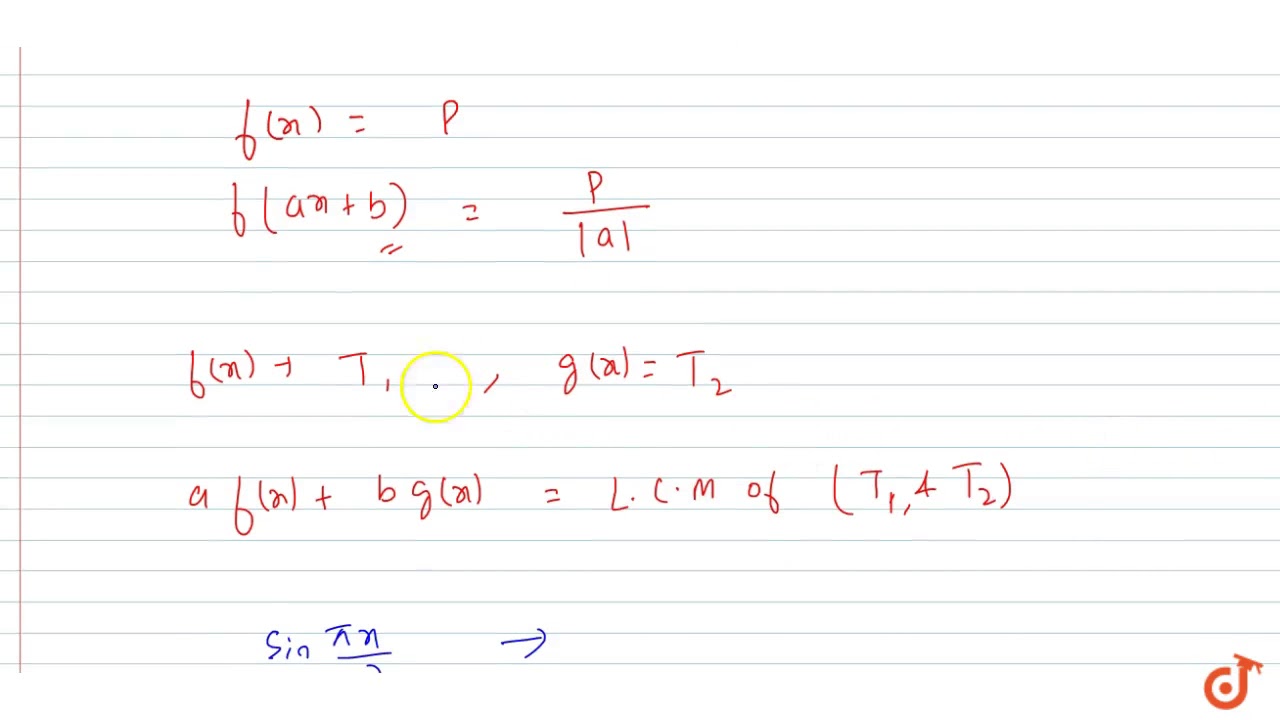 f(x) = P
f(ax + b) = P/|a|
f(x) → T₁ , g(x) = T₂
a f(x) + b g(x) = L.C.M of (T₁, & T₂)
sin πx/ →